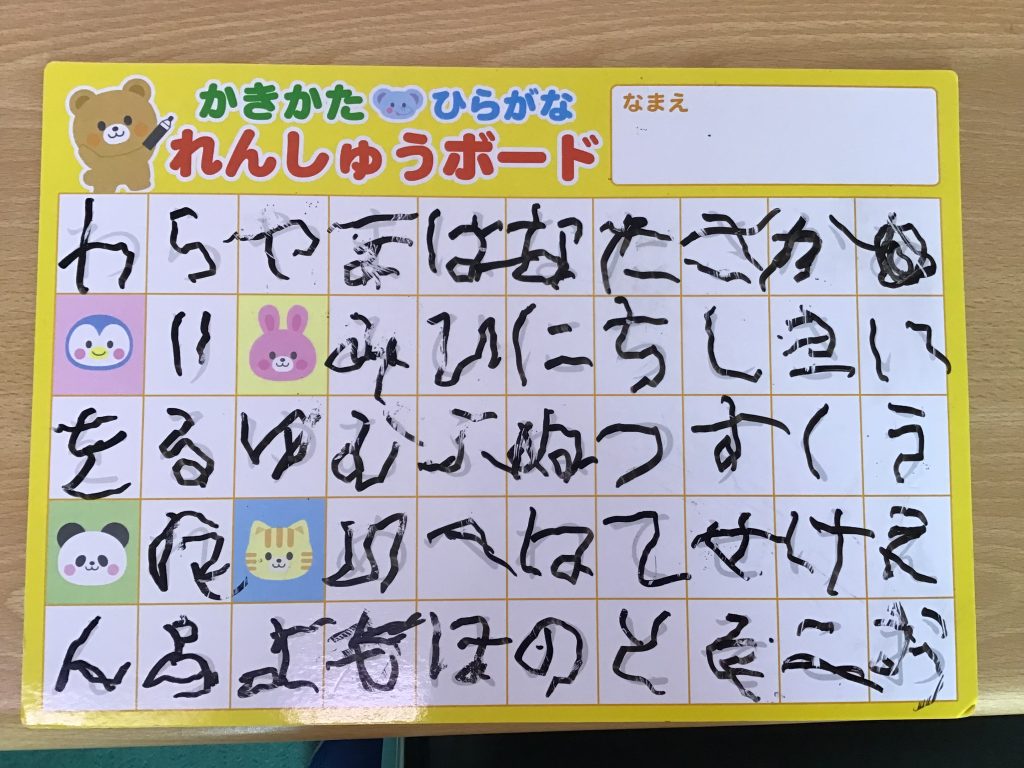 かきかた ひらがな
れんしゅうボード
なまえ
あいうえお
かきくけこ
さしすせそ
たちつてと
なにぬねの
はひふへほ
まみむめも
やゆよ
らりるれろ
わをん